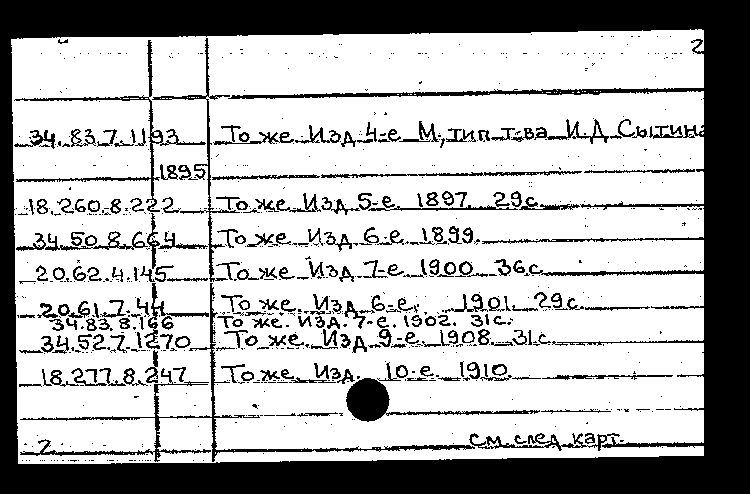 2
34.83.7.1193 То же. Изд. 4-е. М., тип. т-ва И.Д. Сытина
1895
18.260.8.222 То же. Изд. 5-е. 1897. 29с.
34.50.8.664 То же. Изд. 6-е. 1899.
20.62.4.145 То же. Изд. 7-е. 1900. 36с.
20.61.7.44 То же. Изд. 6-е. 1901. 29с.
34.83.8.166 То же. Изд. 7-е. 1902. 31с.
34.52.7.1270 То же. Изд. 9-е. 1908. 31с.
18.277.8.247 То же. Изд. 10-е. 1910.
2 см. след. карт.